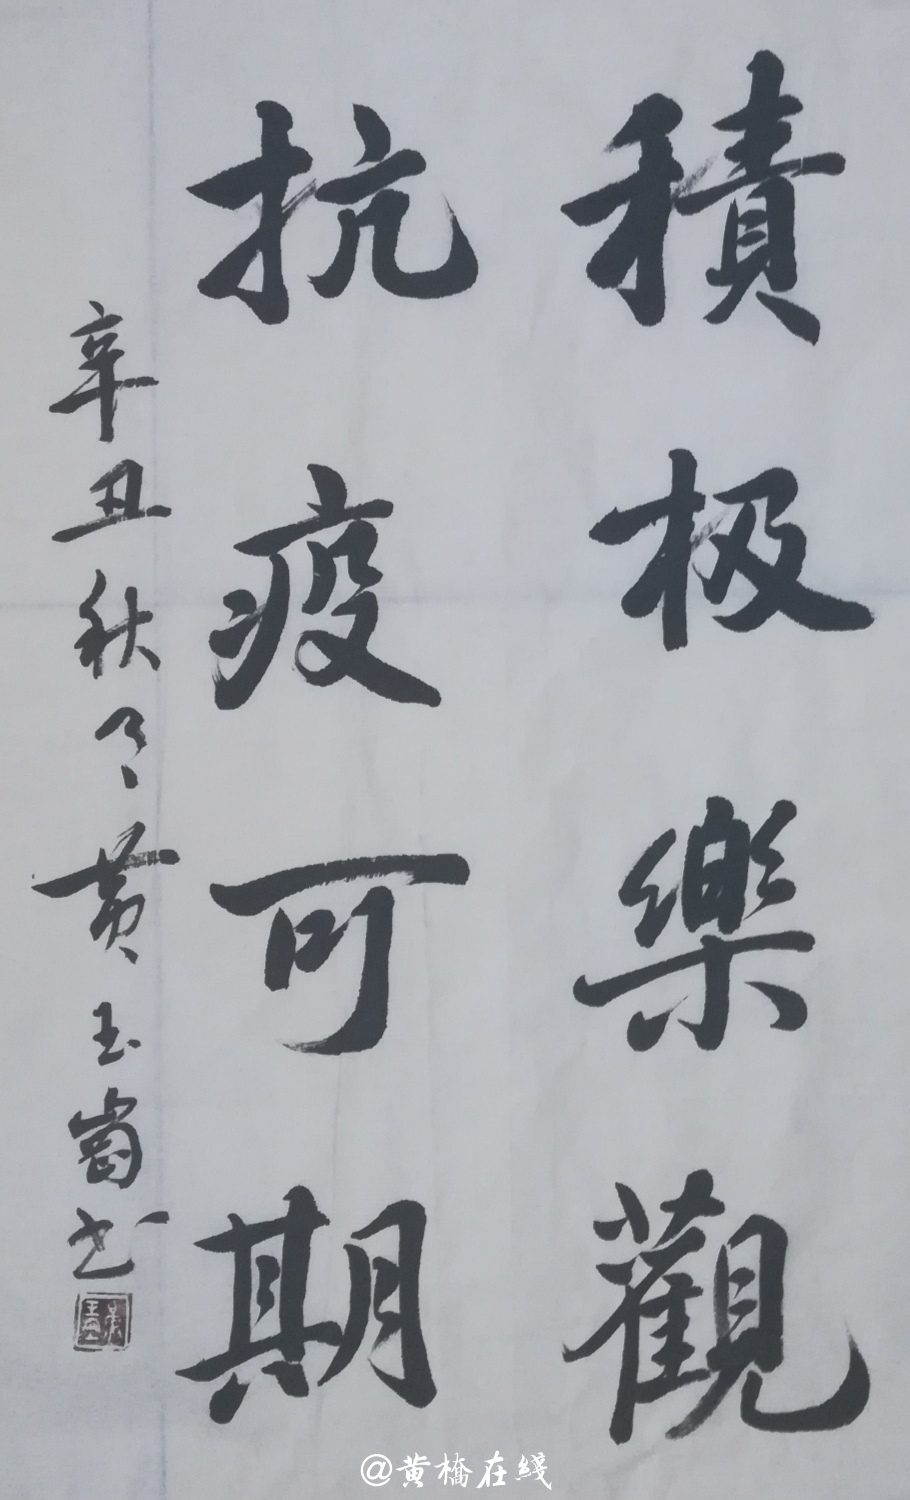 積极樂觀
抗疫可期
辛丑秋 黄玉崗书
@黄橋在綫